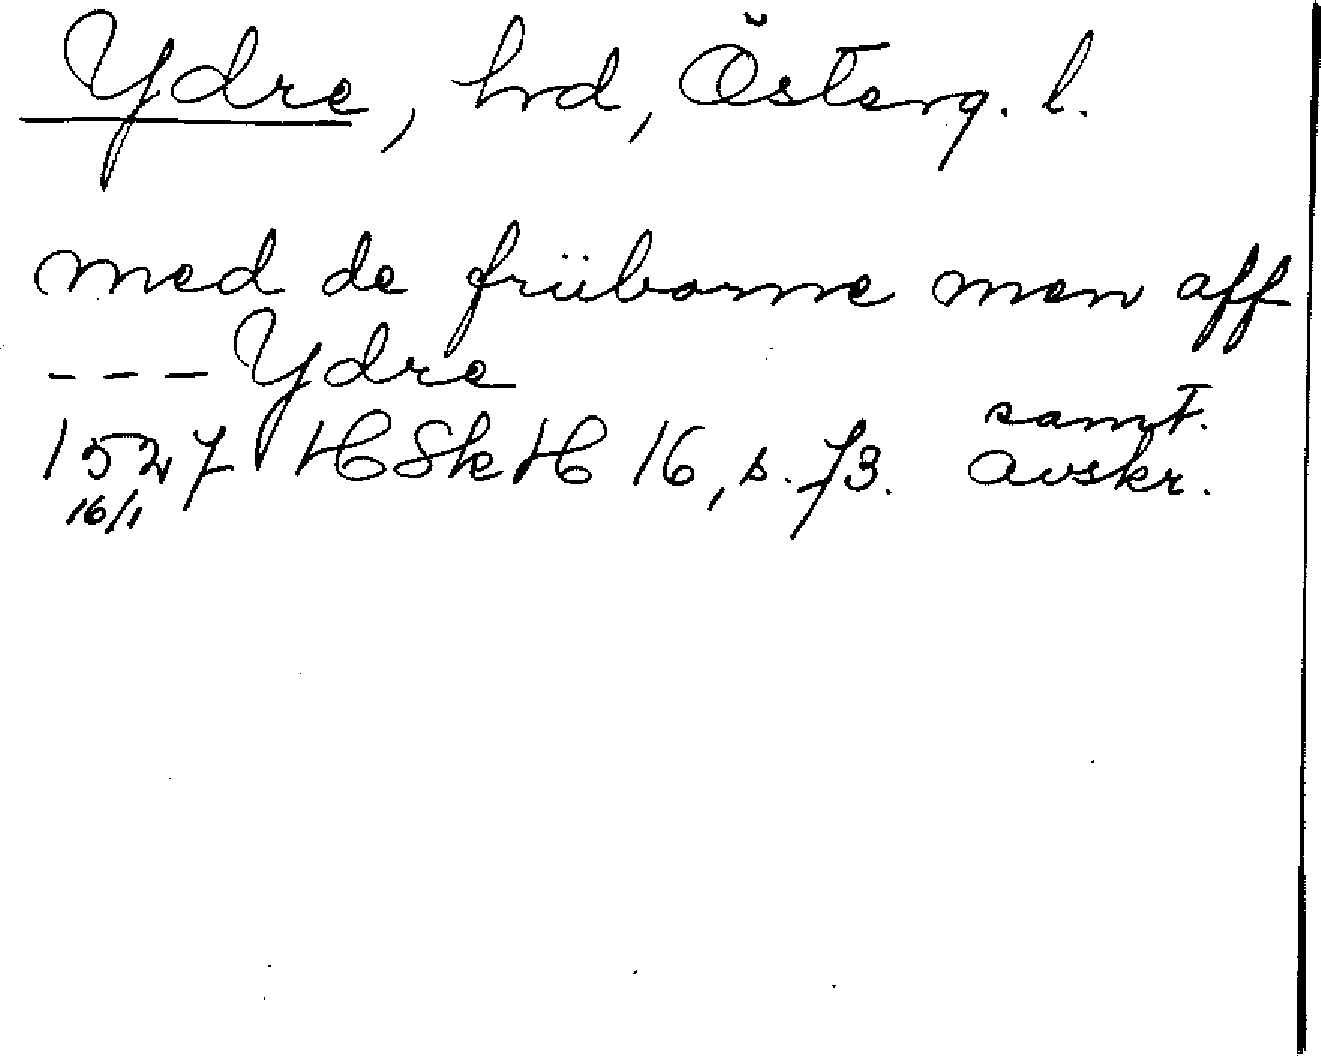 Ydre, hrd, Österg. l.
med de früborne men aff
--- Ydre
samt.
1527 HSkH 16, s. 73. avskr.
16/1